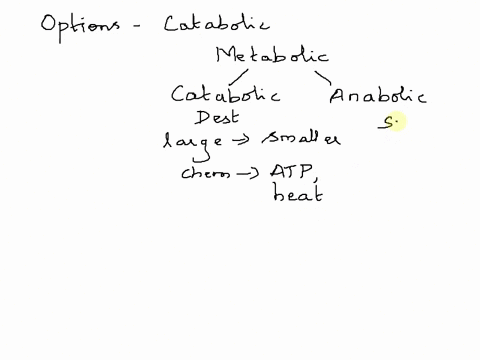 Options - Catabolic
Metabolic
Catabolic Anabolic
Dest S
large → smaller
chem → ATP,
heat